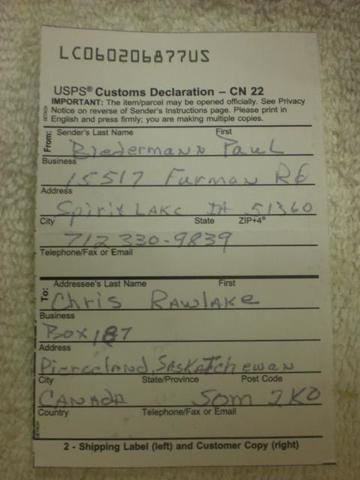 LC060206877US
USPS® Customs Declaration – CN 22
IMPORTANT: The item/parcel may be opened officially. See Privacy
Notice on reverse of Sender's Instructions page. Please print in
English and press firmly; you are making multiple copies.
From: Sender's Last Name First
Biedermann Paul
Business
15517 Furman Rd
Address
Spirit Lake IA 51360
City State ZIP+4®
712 330-9839
Telephone/Fax or Email
To: Addressee's Last Name First
Chris Rawlake
Business
Box 187
Address
Pierceland, Saskatchewan
City State/Province Post Code
Canada S0M 2K0
Country Telephone/Fax or Email
2 - Shipping Label (left) and Customer Copy (right)